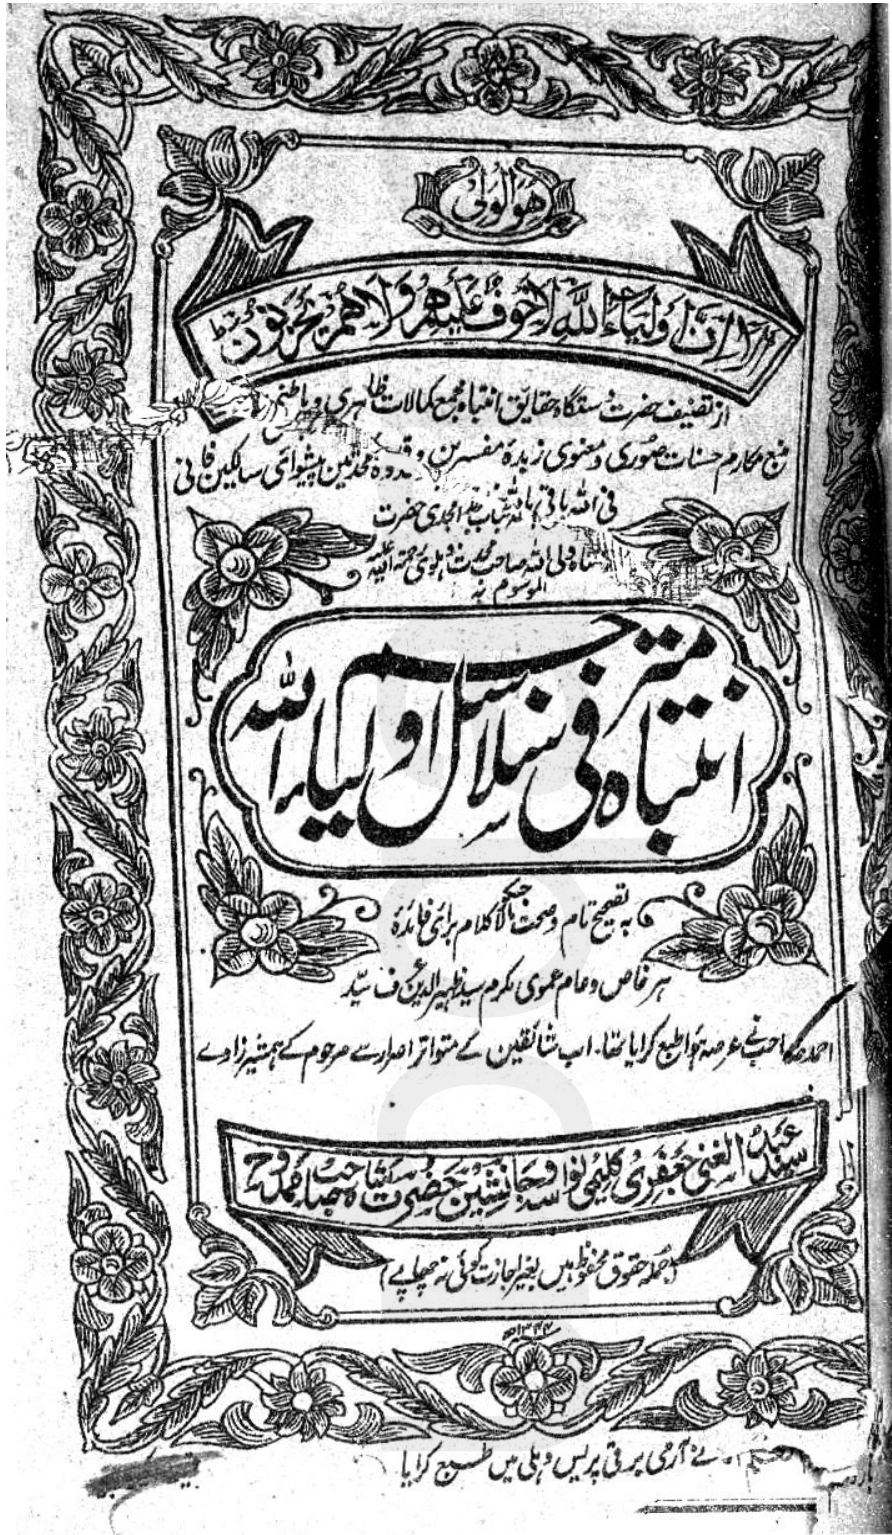 هو الولی
الا ان اولیاء الله لا خوف علیهم ولا هم یحزنون ط
از تصنیف حضرت دستگاه حقایق انتباه مجمع کمالات ظاهری و باطنی
منبع مکارم حسنات صوری و معنوی زبدهٔ مفسرین و قدوهٔ محدثین پیشوائی سالکین فانی
فی الله باقی بالله حضرت
شاه ولی الله صاحب محدث دہلوی رحمة الله علیه
الموسوم به
انتباہ فی سلاسل اولیاء اللہ
مترجم
به تصحیح تام و صحت مالا کلام برائے فائدہٴ
ہر خاص و عام عموی مکرم سید ظہیر الدین عرف سید
احمد صاحب نے عرصہ ہوا طبع کرایا تھا۔ اب شائقین کے متواتر اصرار سے مرحوم کے ہمشیر زادے
سید عبد الغنی جعفری کلیمی نواسہ و جانشین حضرت شاہ صاحب ممدوح
(جملہ حقوق محفوظ ہیں بغیر اجازت کوئی نہ چھاپے)
۱۳۴۴ھ
نے آرمی برقی پریس دہلی میں طبع کرایا